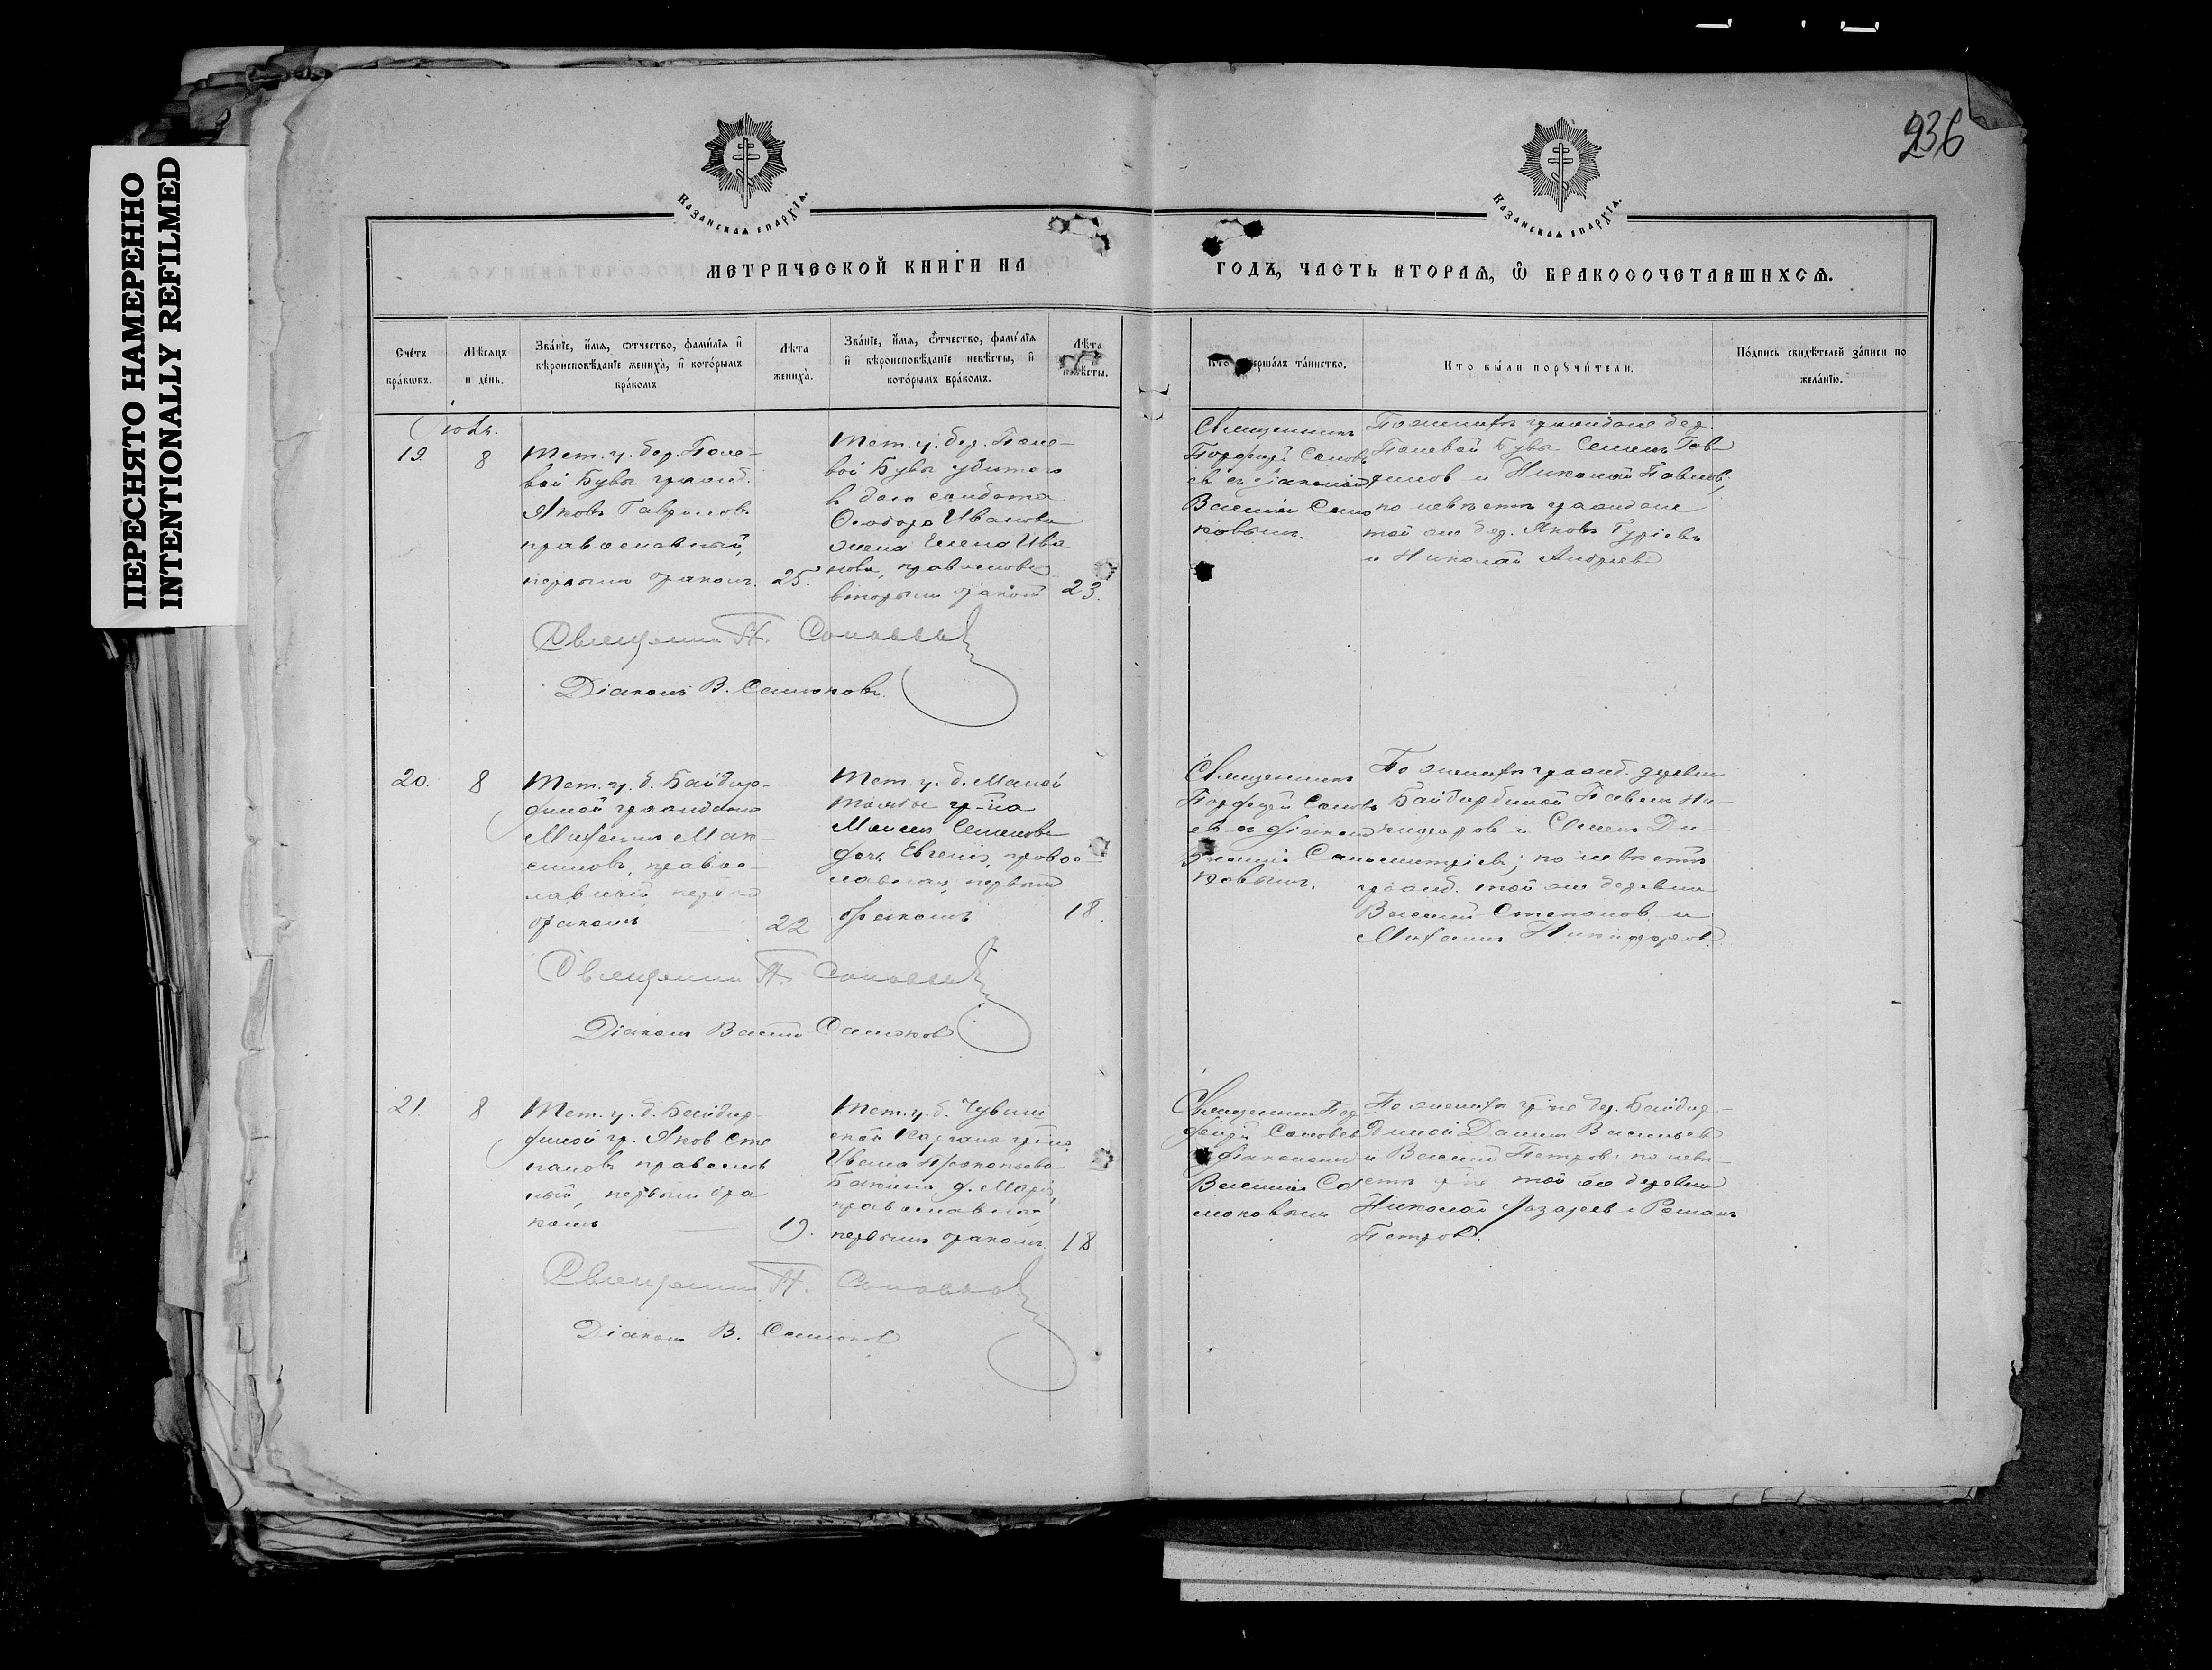 ПЕРЕСНЯТО НАМЕРЕННО
INTENTIONALLY REFILMED
236
Казанская епархїѧ.
Казанская епархїѧ.
МЕТРИЧЕСКОЙ КНИГИ НА
ГОДЪ, ЧАСТЬ ВТОРАѦ, Ѿ БРАКОСОЧЕТАВШИХСѦ.
Счетъ бракѡвъ.
Мѣсѧцъ и день.
Званїе, имѧ, ѡтчество, фамилїѧ и вѣроисповѣданїе жениха, и которымъ бракомъ.
Лѣта жениха.
Званїе, имѧ, ѡтчество, фамилїѧ и вѣроисповѣданїе невѣсты, и которымъ бракомъ.
Лѣта невѣсты.
Кто совершалъ таинство.
Кто были порꙋчители.
Подпись свидѣтелей записи по желанїю.
19.
8
Тет. у. дер. Поле-
вой Бувы гражд.
Яковъ Гавриловъ
православный,
первымъ бракомъ.
25.
Тет. у. дер. Поле-
вой Бувы убитаго
въ бою солдата
Ѳеодора Иванова
жена Елена Ива
нова, православн
вторымъ бракомъ
23.
Священникъ
Порфирій Соловь
евъ съ діакономъ
Василій Само
ковымъ.
По женихѣ граждане дер.
Полевой Бувы Семенъ Гав-
рилов и Николай Павлов;
по невѣстѣ граждане
той же дер. Яковъ Гурьевъ
и Николай Андреев
Священникъ П. Соловьев
Діаконъ В. Самоковъ.
20.
8
Тет. у. б. Байдир-
граждан
Михаилъ Мак-
симовъ, правос-
лавный первым
бракомъ
22
Тет. у. б. Малой
гр-на
Моисея Семенова
дочь Евгенія, правос-
лавная, первым
бракомъ
18.
Священникъ
Порфирій Соловь
евъ съ діакон
Василій Само
ковымъ.
По женихѣ гражд. деревни
Павелъ Ни-
кифоров и Семенъ Ди-
митріевъ; по невѣстѣ
гражд. той же деревни
Василій Степанов и
Михаилъ Никифоров.
Священникъ П. Соловьев
Діаконъ Васил Самоков
21.
8
Тет. у. б. Байдир-
гр. Яков Сте
пановъ православ
ный, первым бра
комъ
19.
Тет. у. б. Чуваш
ской гр-на
Ивана Прокопьева
д. Марія,
православная
первымъ бракомъ.
18
Священник Пор
фирій Соловьев
с діакономъ
Василій Са
моковым
По женихѣ гр-не дер. Байдир-
Данилъ Васильев
и Василій Петров; по невѣ-
стѣ гр-не той же деревни
Николай Лазарев и Романъ
Петров.
Священник П. Соловьев
Діакон В. Самоков